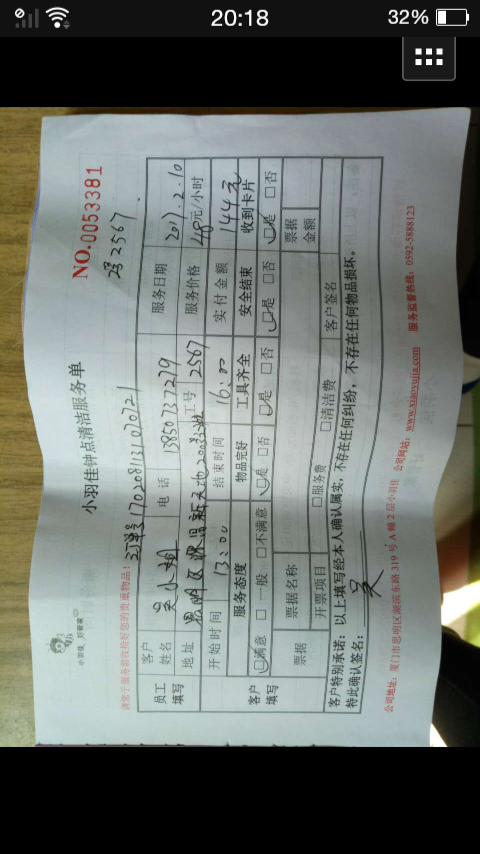 20:18
32%
小羽佳 好管家
小羽佳钟点清洁服务单
NO.0053381
请您于服务前收拾好您的贵重物品!
订单号170208131070721
2567
员工填写
客户姓名
吴小姐
电话
13850737279
服务日期
2017.2.10
地址
思明区
工号
2567
服务价格
48元/小时
开始时间
13:00
结束时间
16:00
实付金额
144元
客户填写
服务态度
物品完好
工具齐全
安全结束
收到卡片
☑满意 □一般 □不满意
☑是 □否
☑是 □否
☑是 □否
☑是 □否
票据
票据名称
票据金额
开票项目
□服务费
□清洁费
客户签名
客户特别承诺:以上填写经本人确认属实,不存在任何纠纷,不存在任何物品损坏。
特此确认签名:吴
公司地址:厦门市思明区湖滨东路 319 号 A 幢 2 层小羽佳 公司网站:www.xiaoyujia.com 服务监督热线:0592-5888123